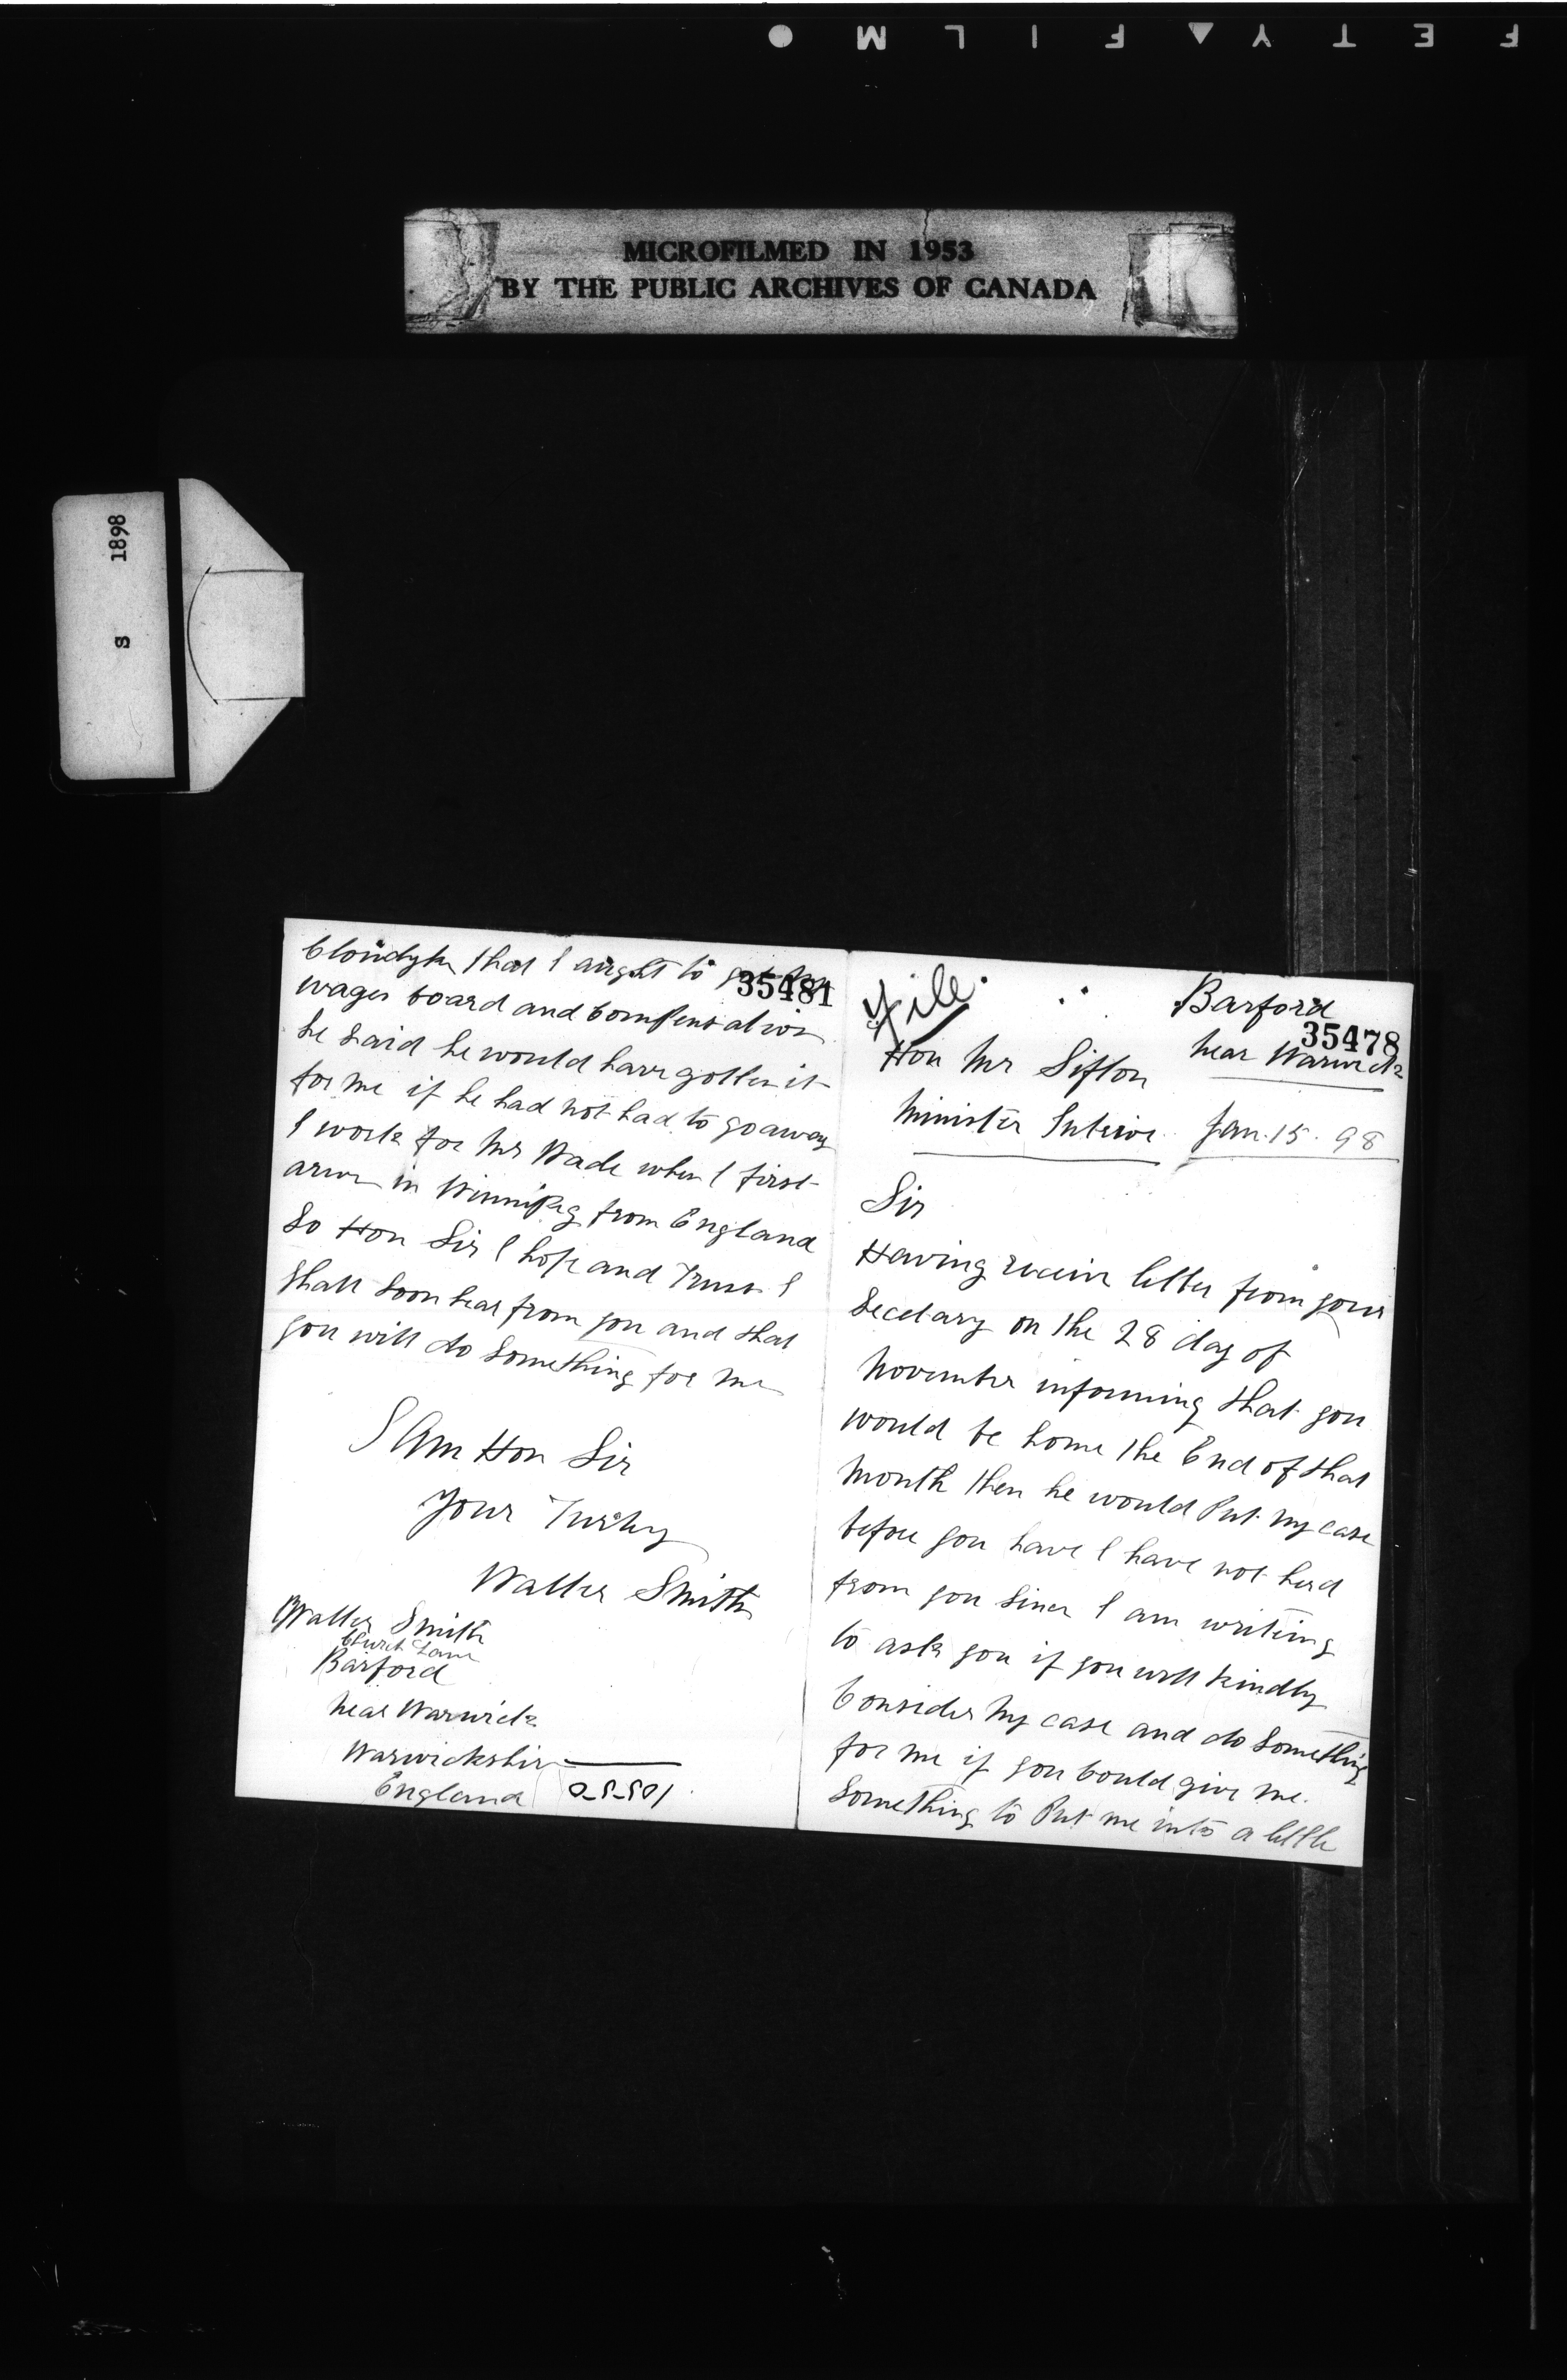 FETY▲FILM●
MICROFILMED IN 1953
BY THE PUBLIC ARCHIVES OF CANADA
S 1898
File
Barford
35478
near Warwick
Hon Mr Sifton
Minister Interior Jan. 15. 98
Sir
Having receive letter from your
Secetary on the 28 day of
November informing that you
would be home the End of that
month then he would Put my case
before you have I have not herd
from you since I am writing
to ask you if you will kindly
Consider my case and do something
for me if you Could give me
something to Put me into a little
35481
Clondyke that I aught to get my
wages board and Compensation
he said he would have gotten it
for me if he had not had to go away
I work for Mr Wade when I first
arive in Winnipeg from England
So Hon Sir I hope and Trust I
shall soon hear from you and that
you will do something for me
I Am Hon Sir
Your Truly
Walter Smith
Walter Smith
Church Lane
Barford
near Warwick
Warwickshire
England